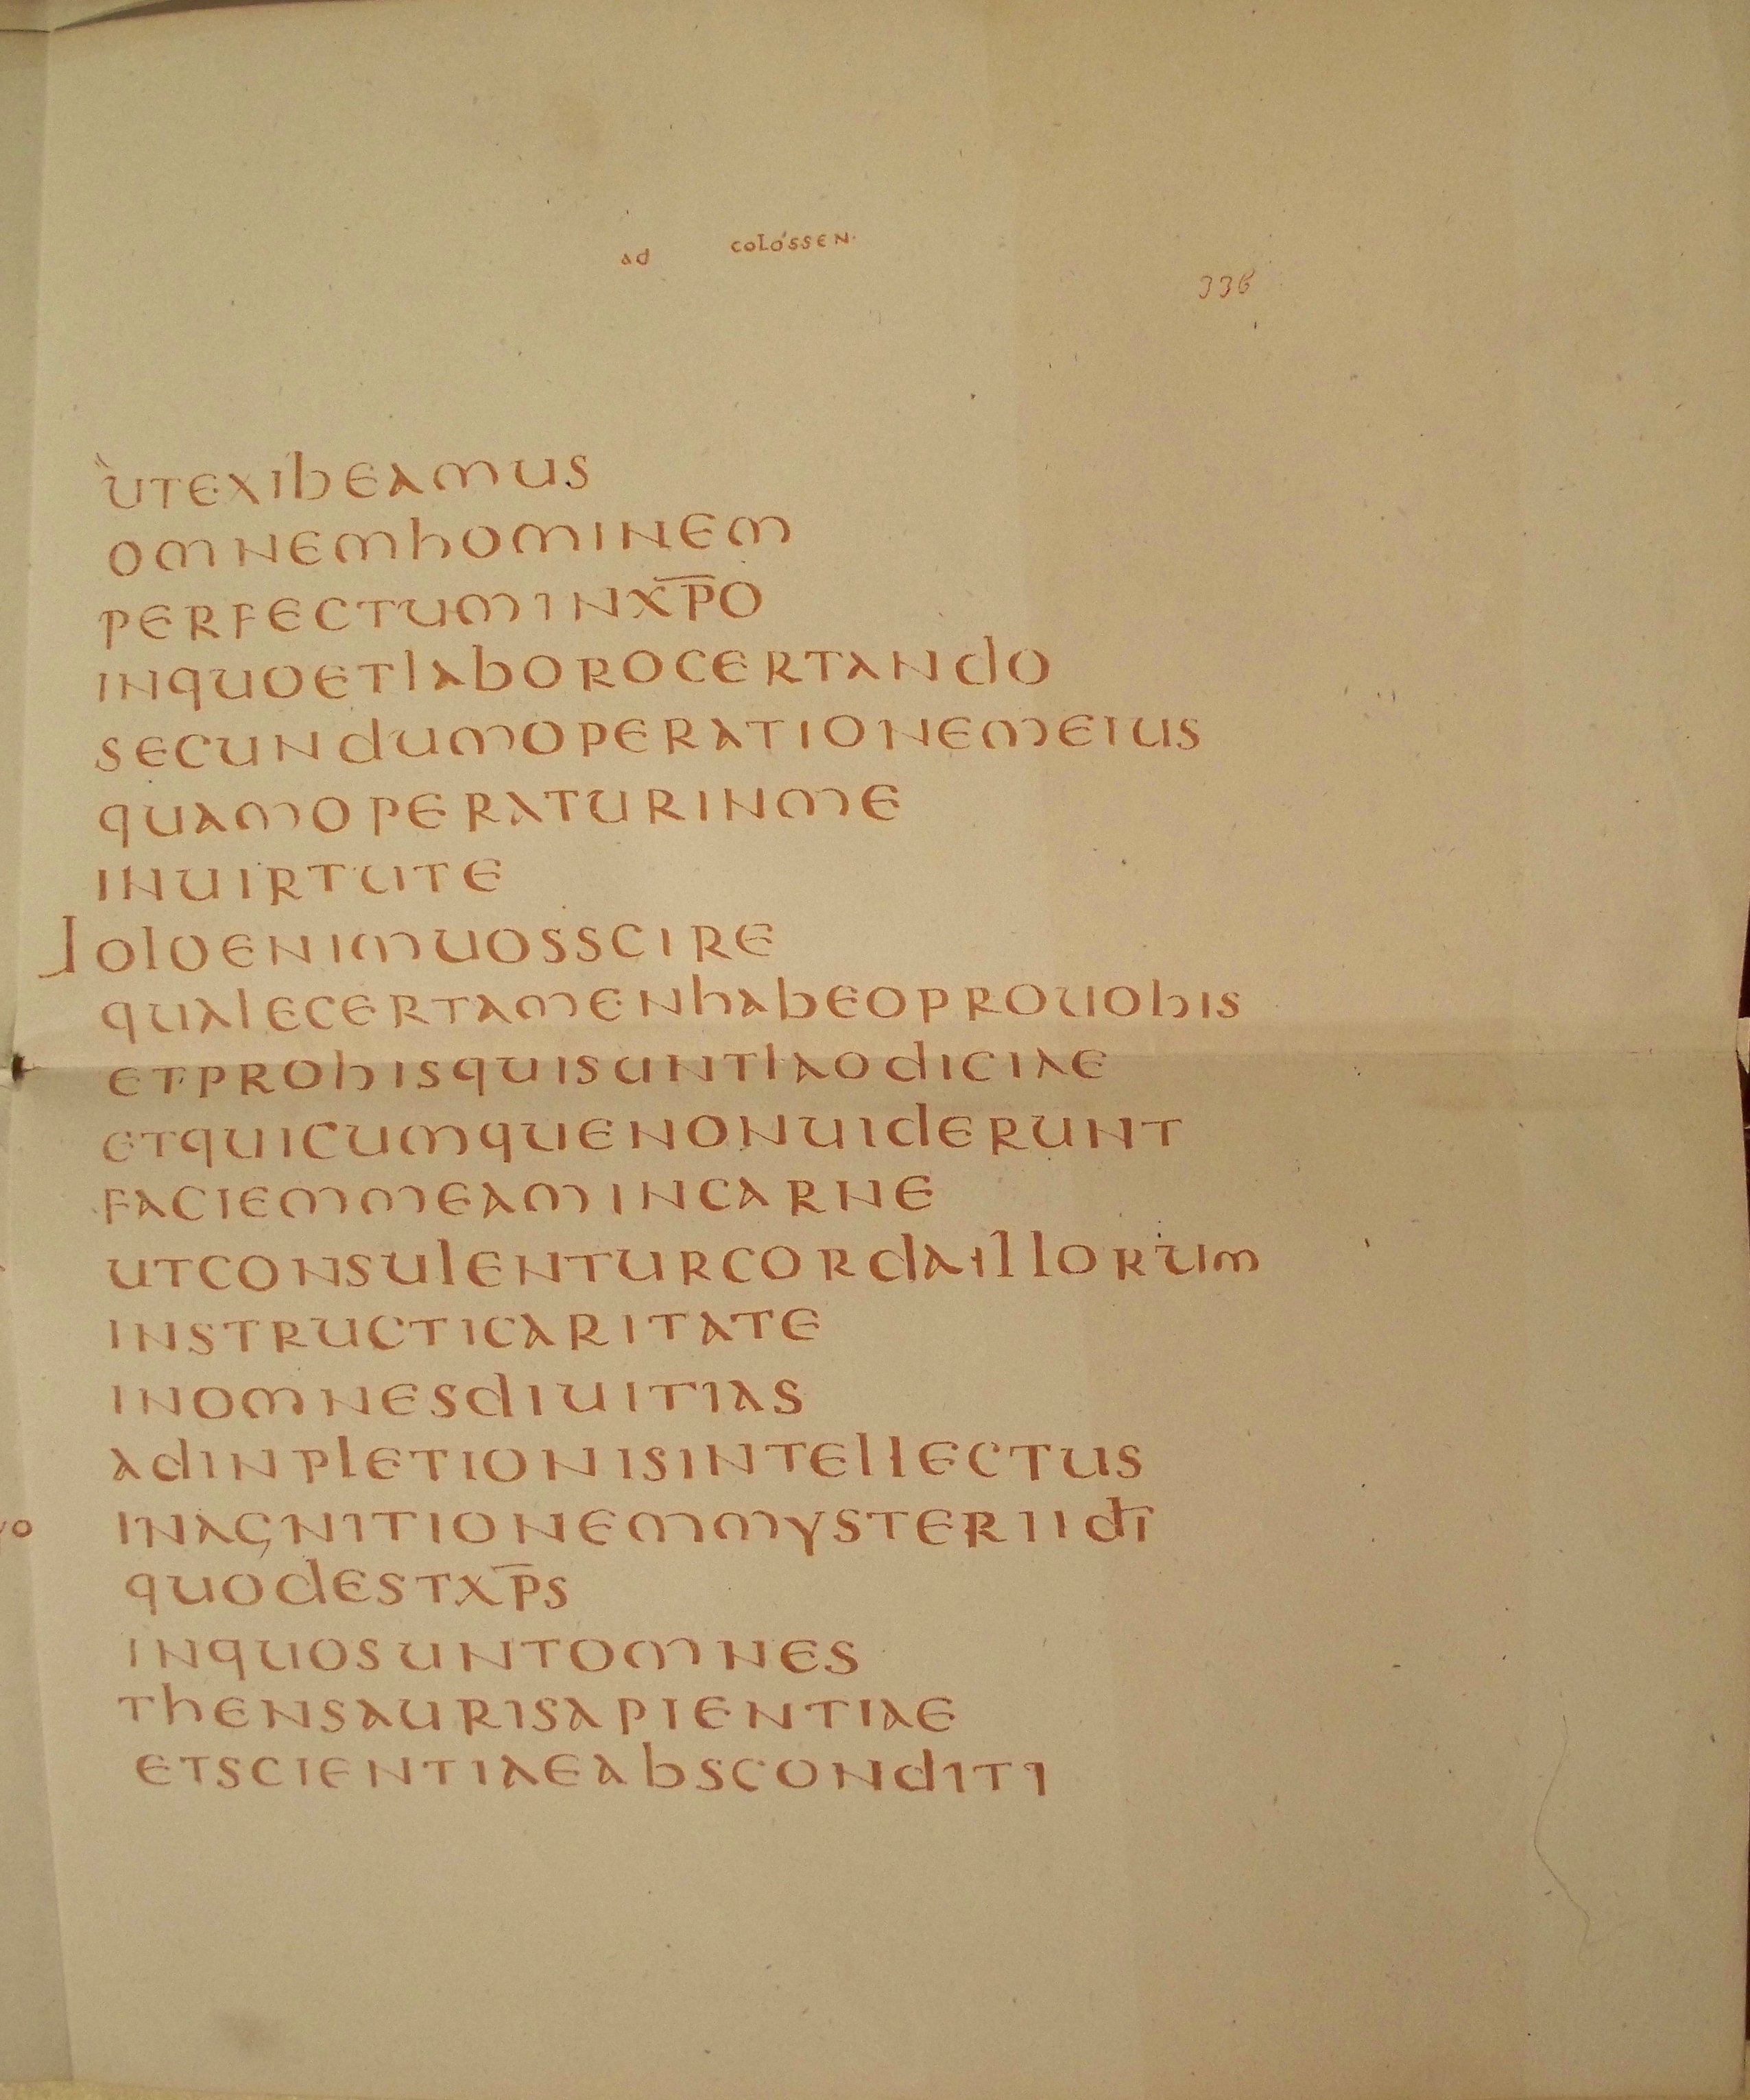 ad COLOSSEN.
336
UTEXIbEAMUS
OMNEMhOMINEM
PERFECTUMINX̅P̅O
INqUOETlAbOROCERTANdO
SECUNdUMOPERATIONEMEIUS
qUAMOPERATURINME
INUIRTUTE
JOlOENIMUOSSCIRE
qUAlECERTAMENhAbEOPROUOhIS
ETPROhISqUISUNTlAOdICIAE
ETqUICUMqUENONUIdERUNT
FACIEMMEAMINCARNE
UTCONSUlENTURCORdAIllORUM
INSTRUCTICARITATE
INOMNESdIUITIAS
AdINPlETIONISINTEllECTUS
INAGNITIONEMMYSTERIId̅I̅
qUOdESTX̅P̅S
INqUOSUNTOMNES
ThENSAURISAPIENTIAE
ETSCIENTIAEAbSCONdITI